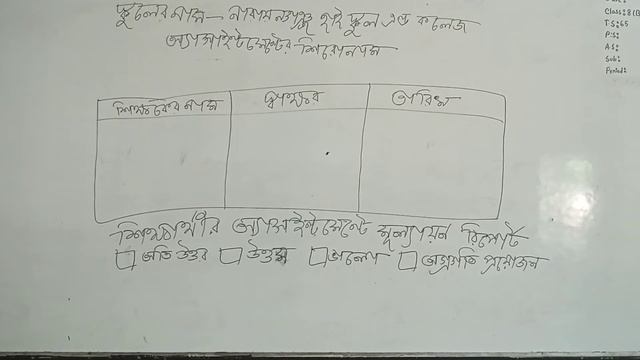 স্কুলের নাম— নারায়ণগঞ্জ হাই স্কুল এন্ড কলেজ
অ্যাসাইন্টমেন্টের শিরোনাম
শিক্ষকের নাম স্বাক্ষর তারিখ
শিক্ষার্থীর অ্যাসাইন্টমেন্টে মূল্যায়ন রিপোর্ট
অতি উত্তম উত্তম ভালো অগ্রগতি প্রয়োজন
Class: 8(B
T.S: 65
P.S:
A.S:
Sub:
Period: